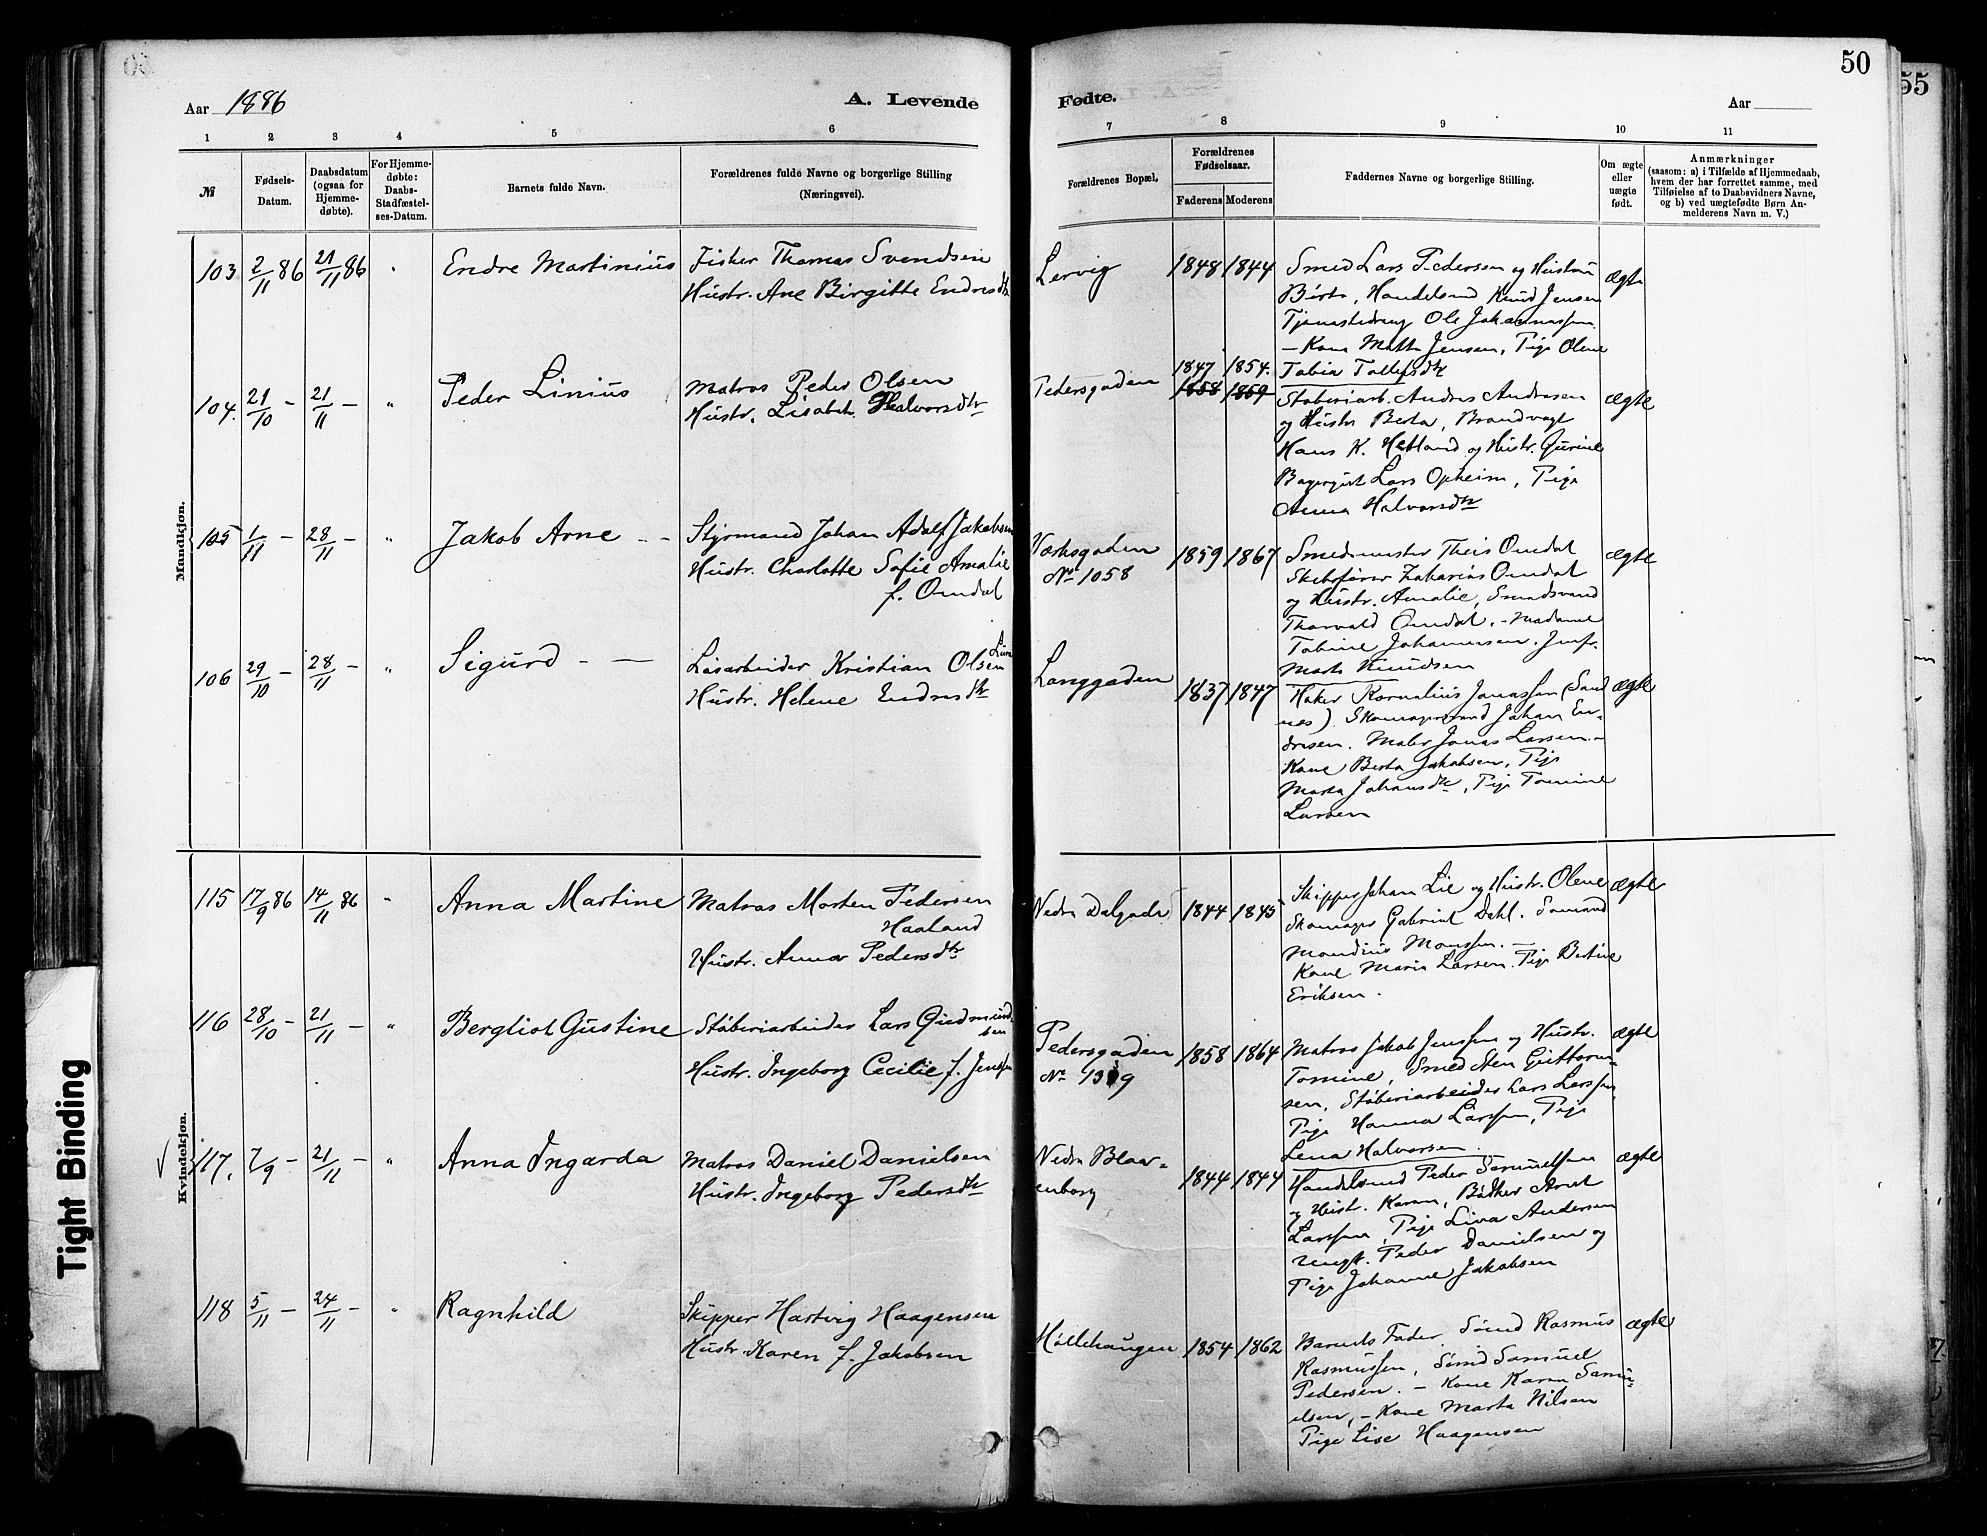 50
55
Aar 1886
A. Levende
Fødte.
Aar
1 2 3 4 5 6 7 8 9 10 11
№
Fødsels-
Datum.
Daabsdatum
(ogsaa for
Hjemme-
døbte).
For Hjemme-
døbte:
Daabs-
Stadfæstel-
ses-Datum.
Barnets fulde Navn.
Forældrenes fulde Navne og borgerlige Stilling
(Næringsvei).
Forældrenes Bopæl.
Forældrenes
Fødselsaar.
Faderens Moderens
Faddernes Navne og borgerlige Stilling.
Om ægte
eller
uægte
født.
Anmærkninger
(saasom: a) i Tilfælde af Hjemmedaab,
hvem der har forrettet samme, med
Tilføielse af to Daabsvidners Navne,
og b) ved uægtefødte Børn An-
melderens Navn m. V.)
Mandkjøn.
103 2/11 86 21/11 86 " Endre Martinius
Fisker Thomas Svendsen
Hustr. Ane Birgitte Endresdtr
Lervig 1848 1844
Smed Lars Pedersen og Hustru
Berta, Handelsmd Knud Jensen
Tjenestedreng Ole Johannessen
– Kone Jensen, Pige Olene
Tobia Tollefsdtr
ægte
104. 21/10 – 21/11 – " Peder Linius
Matros Peder Olsen
Hustr. Lisabet Halvorsdtr
Pedersgaden
1847 1854.
1858 1859
Støberiarb. Andres Andresen
og Hustr Berta, Brandvagt
Hans K. Hetland og Hustr. Gurine
Bagersvt Lars Opheim, Pige
Anna Halvorsdtr
ægte
105 1/11 – 28/11 – " Jakob Arne – –
Styrmand Johan Adolf Jakobsen
Hustr. Charlotte Sofie Amalie
f. Omdal
Værksgaden
№ 1058
1859 1867
Smedmester Theis Omdal
Skibsfører Zakarias Omdal
og Hustr. Amalie, Smedsvend
Thorvald Omdal. – Madame
Tobine Johannesen. Jmfr.
Marta Knudsen
ægte
106 29/10 – 28/11 – " Sigurd – –
Løsarbeider Kristian Olsen
Hustr. Helene Endresdtr
Langgaden 1837 1847
Høker Kornelius Jonassen (Sand
nes). Skomagersvend Johan En-
dresen. Maler Jonas Larsen. –
Kone Berta Jakobsen, Pige
Marta Johansdtr, Pige Tomine
Larsen
ægte
Kvindekjøn.
115 17/9 86 14/11 86 " Anna Martine
Matros Morten Pedersen
Haaland
Hustr. Anna Pedersdtr
Nedre Dalgade 1844 1845
Skipper Johan Lie og Hustr. Olene
Skomager Gabriel Dahl. Sømand
Mandius Monssen. –
Kone Maria Larsen. Pige Bertine
Eriksen.
ægte
116 28/10 – 21/11 – " Bergliot Gustine
Støberiarbeider Lars Gudmund-
sen
Hustr. Ingeborg Cecilie f. Jenssen
Pedersgaden
1858 1864
Matros Jakob Jenssen og Hustr.
Tomine, Smed Sten Guttorm-
sen, Støberiarbeider Lars Larssen,
Pige Hanna Larssen, Pige
Lena Halvorsen
ægte
117. 7/9 – 21/11 – " Anna Ingarda
Matros Daniel Danielsen
Hustr. Ingeborg Pedersdtr
Nedre Blaas-
enborg
1844 1844
Handelsmd Peder Samuelsen
og Hustr. Karen, Bødker Arnt
Larssen, Pige Liva Andersen
Ungk. Peder Danielsen og
Pige Johanne Jakobsen
ægte
118 5/11 – 24/11 – " Ragnhild
Skipper Hartvig Haagensen
Hustr. Karen f. Jakobsen
Møllehaugen 1854 1862
Barnets Fader Sømd Rasmus
Rasmussen, Sømd Samuel
Pedersen. – Kone Karen Samu-
elsen, – Kone Marta Nilsen
Pige Lise Haagensen
ægte
Tight Binding